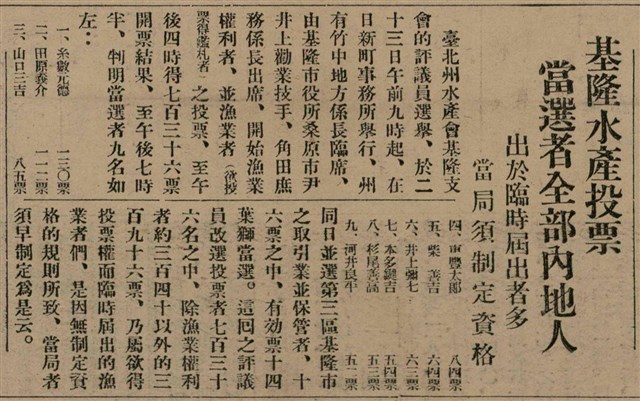 基隆水產投票
當選者全部內地人
出於臨時屆出者多
當局須制定資格
臺北州水產會基隆支
會的評議員選舉、於二
十三日午前九時起、在
日新町事務所舉行、州
有竹中地方係長臨席、
由基隆市役所桑原市尹
井上勸業技手、角田庶
務係長出席、開始漁業
權利者、並漁業者(欲投
票得鑑札者)之投票、至午
後四時得七百三十六票
開票結果、至午後七時
半、判明當選者九名如
左：
一、糸數元德 一三〇票
二、田原義介 一一二票
三、山口三吉 八五票
四、重豐太郎 八四票
五、柴 善吉 六四票
六、井上彌七 六三票
七、本多績吉 五四票
八、杉尾善 五三票
九、河井良平 五二票
同日並選第三區基隆市
之取引業並保管者、十
六票之中、有効票十四
葉獅當選。這回之評議
員改選投票者七百三十
六名之中、除漁業權利
者約三百四十以外的三
百九十六票、乃屬欲得
投票權而臨時屆出的漁
業者們、是因無制定資
格的規則所致、當局者
須早制定為是云。